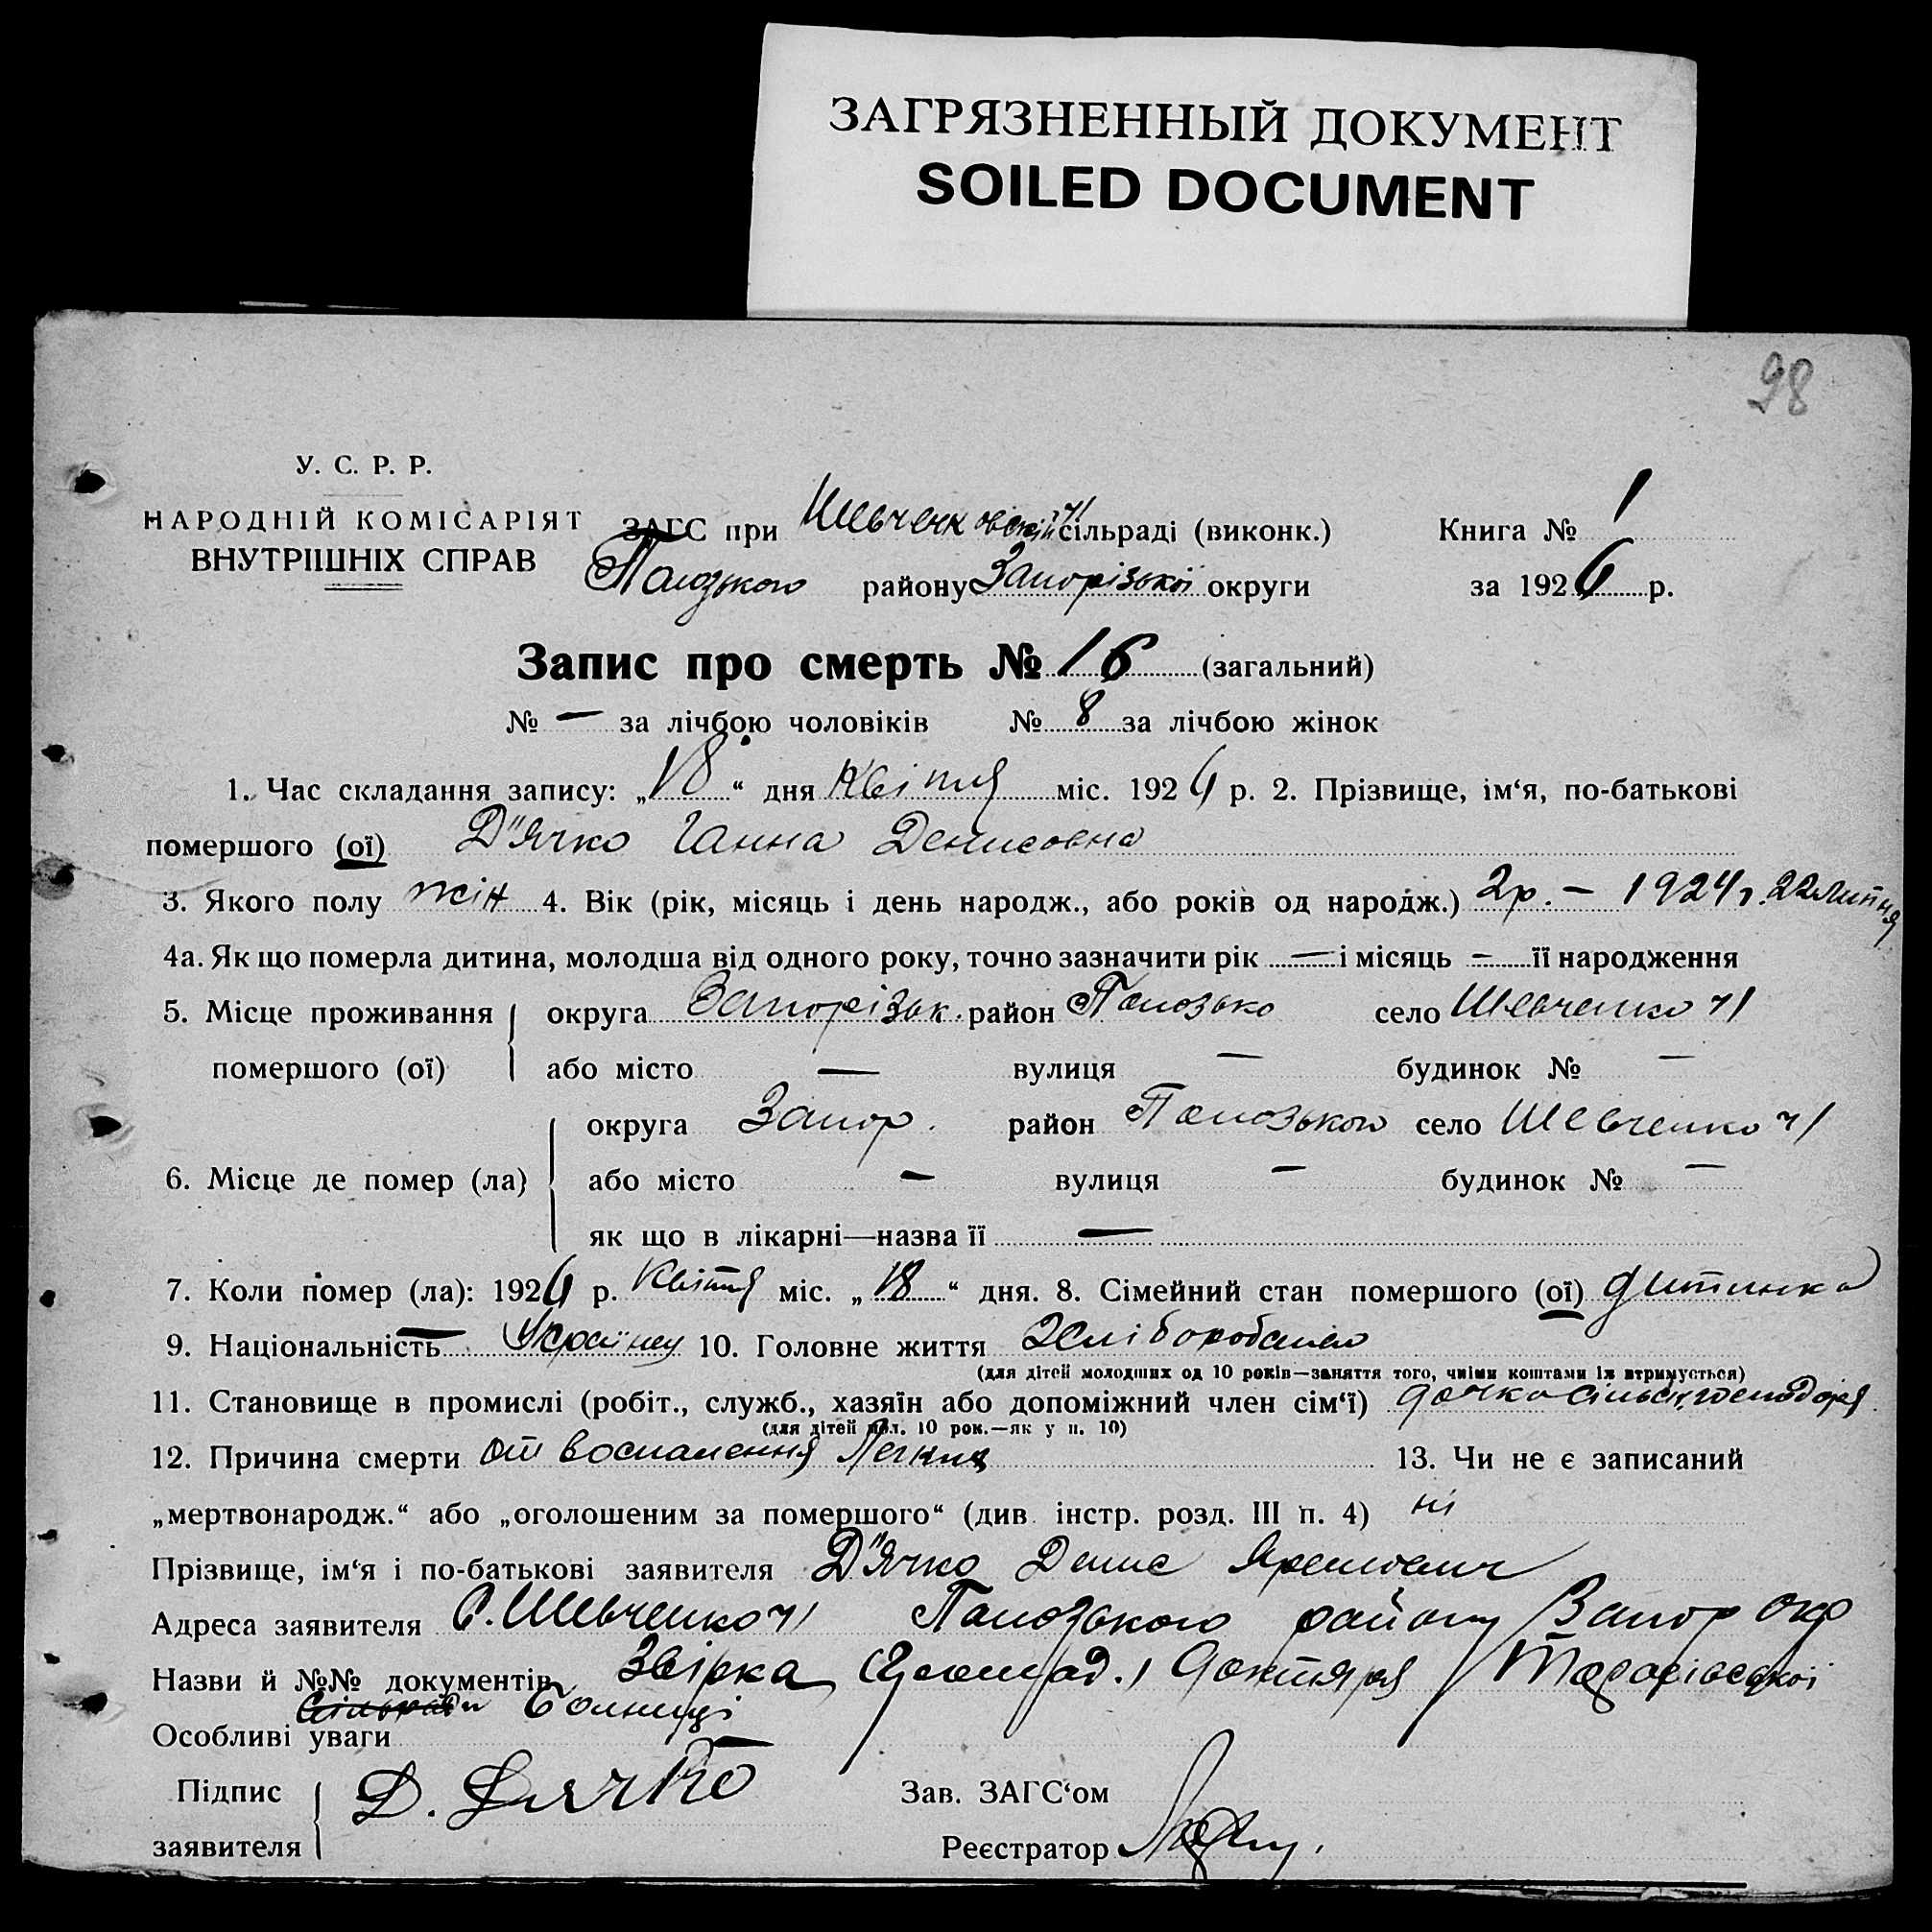 ЗАГРЯЗНЕННЫЙ ДОКУМЕНТ
SOILED DOCUMENT
98
У. С. Р. Р.
НАРОДНІЙ КОМІСАРІЯТ
ВНУТРІШНІХ СПРАВ
ЗАГС при Шевченковській ч1 сільраді (виконк.) Книга № 1
району Запорізької округи за 1926 р.
Запис про смерть № 16 (загальний)
№ — за лічбою чоловіків № 8 за лічбою жінок
1. Час складання запису: „18“ дня Квітня міс. 1926 р. 2. Прізвище, ім‘я, по-батькові
помершого (ої) Д"ячко Ганна Денисовна
3. Якого полу жін 4. Вік (рік, місяць і день народж., або років од народж.) 2р. — 1924 р. 22 Липня
4а. Як що померла дитина, молодша від одного року, точно зазначити рік — і місяць — її народження
5. Місце проживання округа Запорізьк. район село Шевченко ч1
помершого (ої) або місто — вулиця — будинок № —
округа Запор. район село Шевченко ч1
6. Місце де помер (ла) або місто — вулиця — будинок № —
як що в лікарні—назва її —
7. Коли помер (ла): 1926 р. Квітня міс. „18“ дня. 8. Сімейний стан помершого (ої) дитинка
9. Національність Українц 10. Головне життя
(для дітей молодших од 10 років—заняття того, чиїми коштами їх втримується)
11. Становище в промислі (робіт., служб., хазяїн або допоміжний член сім‘ї) дочка
(для дітей мол. 10 рок.—як у п. 10)
12. Причина смерти от воспалення Легких 13. Чи не є записаний
„мертвонародж.“ або „оголошеним за помершого“ (див. інстр. розд. III п. 4) ні
Прізвище, ім‘я і по-батькові заявителя Д"ячко Денис
Адреса заявителя С. Шевченко ч1 району Запор окр
Назви й №№ документів
Больниці
Особливі уваги —
Підпис Д. Дячко Зав. ЗАГС‘ом
заявителя Реєстратор